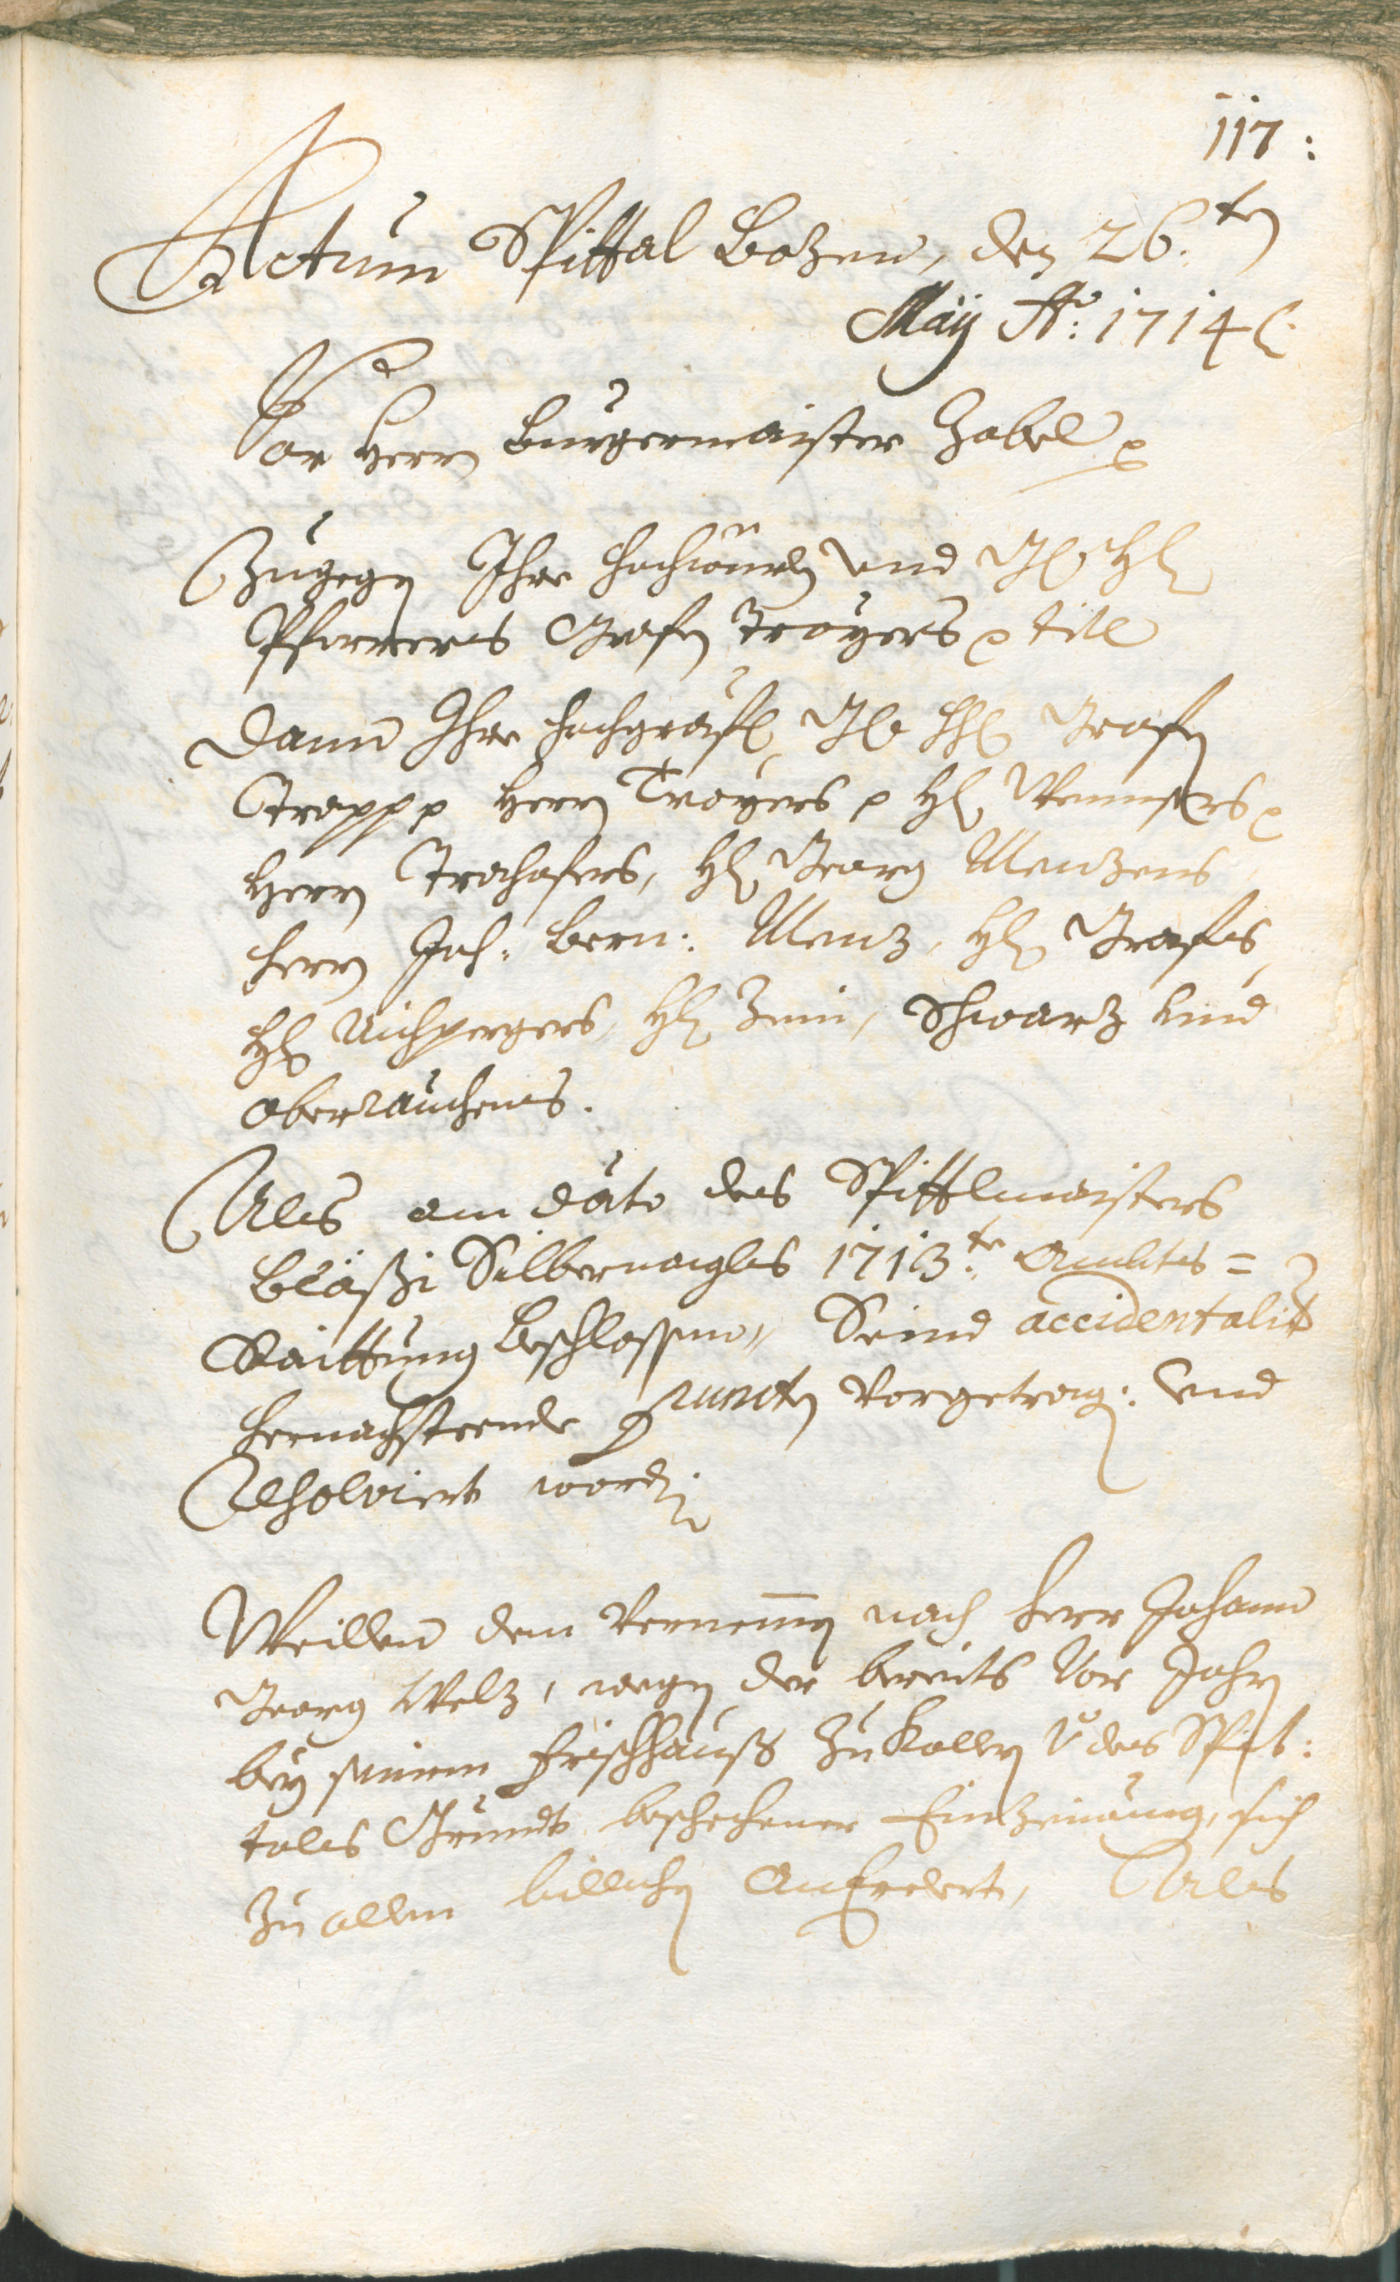 117:
Actum Spittal Bozen, den 26.ten
Maÿ A.o 1714
Vor Herrn Burgermaister Zobel p
Zugegen Ihro Hochwürden und Gl Hl
Pfarrers Grafen Troÿers p titl
Dann Ihro Hochgräfl Gl HHl Grafen
Trapp p Herrn Troÿers p Hl Wennsers p
Herrn Trochofers, Hl Georg Menzens
Herrn Joh: Bern: Menz, Hl Grafs,
Hl Aichpergers, Hl Zeni, Schwarz und
Oberrauchens.
Als am dato des Spittlmaisters
Bläßi Silbernagls 1713.te Ambts=
Raittung beschlossen, Seind accidentaliter
hernachsteende puncten vorgetrag: und
Resolviert worden
Weillen dem Vernemen nach Herr Johann
Georg Welz, wegen der bereits vor Jahren
beÿ seinem Frischhauß zu Kollern des Spit:
tals Grundt beschechener Einzeinung, sich
zu allem billichen Anerbiet, Als